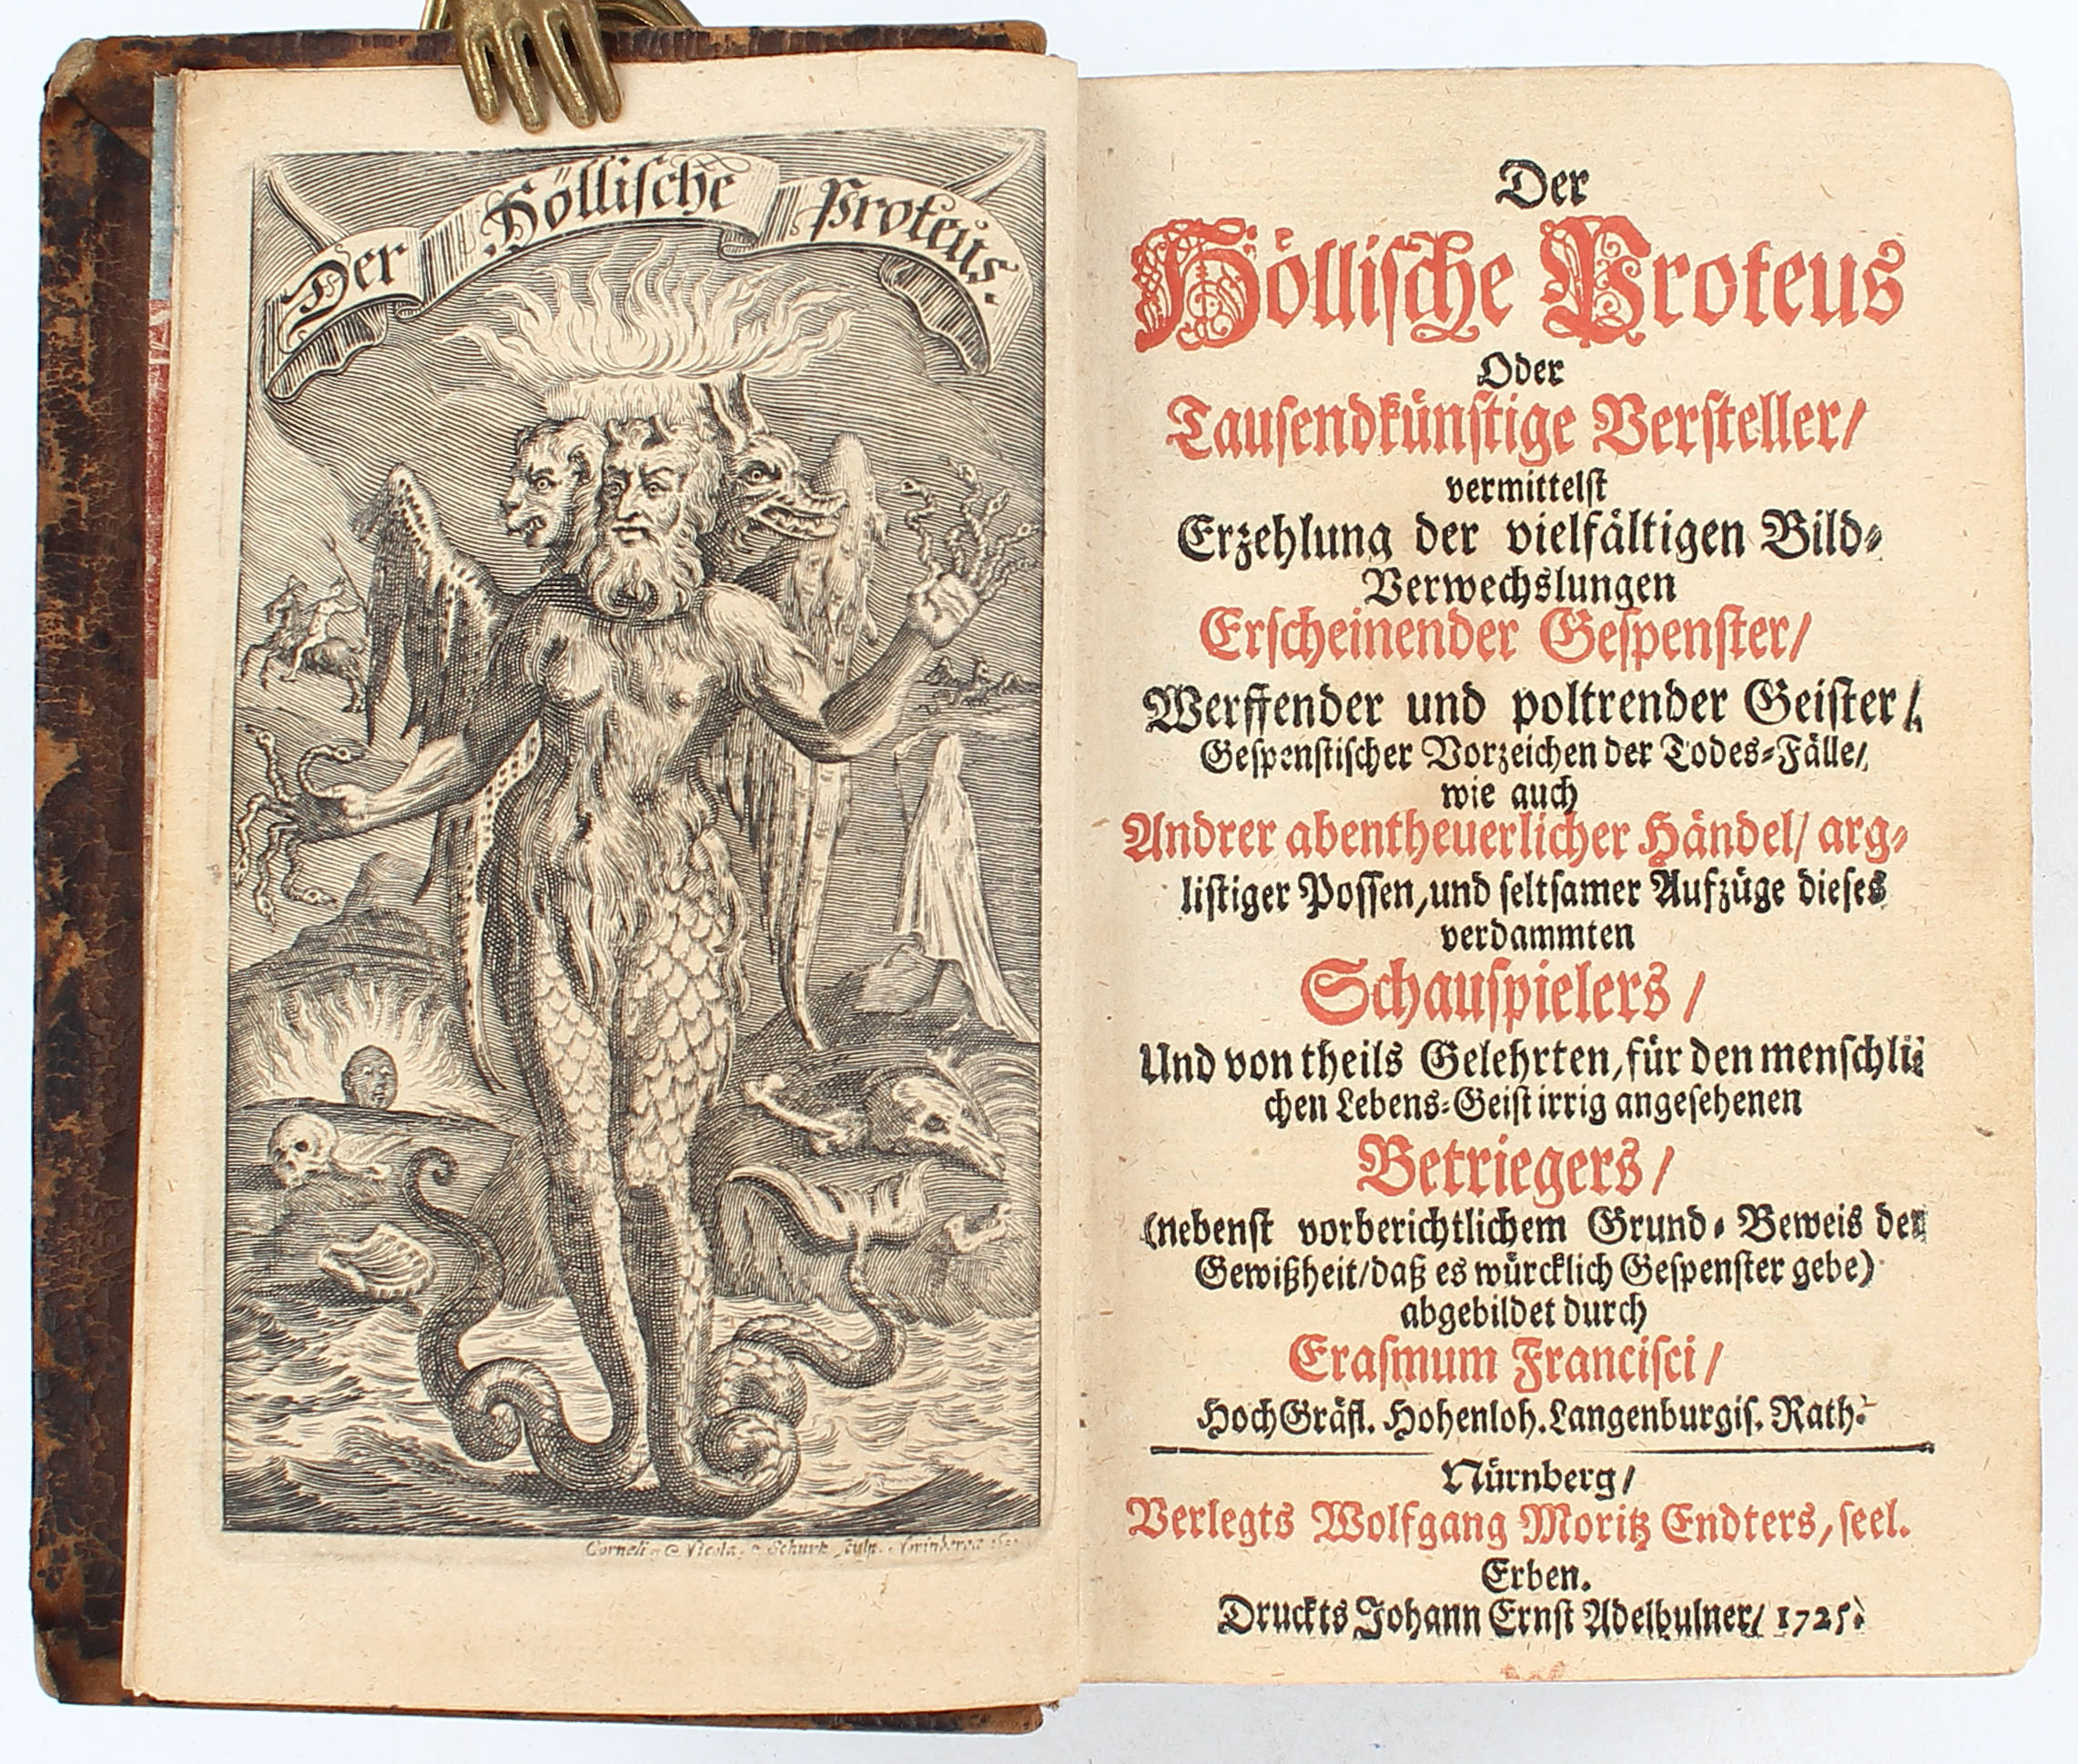 Der Höllische Proteus.
Sculp.
Der
Höllische Proteus
Oder
Tausendkünstige Versteller/
vermittelst
Erzehlung der vielfältigen Bild-
Verwechslungen
Erscheinender Gespenster/
Werffender und poltrender Geister/
Gespenstischer Vorzeichen der Todes-Fälle/
wie auch
Andrer abentheuerlicher Händel/ arg-
listiger Possen, und seltsamer Aufzüge dieses
verdammten
Schauspielers/
Und von theils Gelehrten, für den menschli-
chen Lebens-Geist irrig angesehenen
Betriegers/
(nebenst vorberichtlichem Grund-Beweis der
Gewißheit/ daß es würcklich Gespenster gebe)
abgebildet durch
Erasmum Francisci/
HochGräfl. Hohenloh. Langenburgis. Rath.
Nürnberg/
Verlegts Wolfgang Moritz Endters, seel.
Erben.
Druckts Johann Ernst Adelbulner/ 1725.